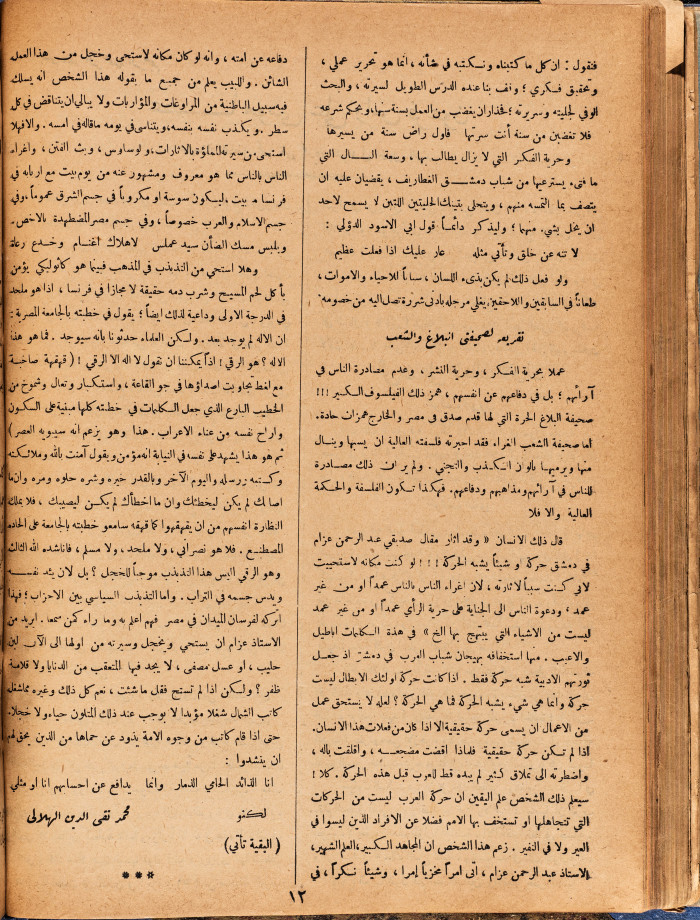 فنقول : ان كل ما كتبناه ونسكتبه في شأنه ، انما هو تحرير عملي ،
وتحقيق فسكري ؛ وانف بنا عنده الدرس الطويل لسيرته ، والبحث
الوفي لجليته وسريرته ؛ فحذار ان يغضب من العمل بسنة سنها ، ومحكم شرعه
فلا تغضبن من سنة أنت سرتها فاول راض سنة من يسيرها
وحرية الفكر التي لا يزال يطالب بها ، وسعة البال التي
ما فتىء يسترعيها من شباب دمشق الغطاريف ، يقضيان عليه ان
يتصف بما التمسه منهم ، ويتحلى بتينك الحليتين اللتين لا يسمح لاحد
ان يخل بشيء منهما ؛ وليذكر دائماً قول ابي الاسود الدؤلي :
لا تنه عن خلق وتأتي مثله عار عليك اذا فعلت عظيم
ولو فعل ذلك لم يكن بذىء اللسان ، سباً للاحياء والاموات ،
طعاناً في السابقين واللاحقين يغلي مرجله بأدنى شررة تصل اليه من خصومه
تقريعه لصحيفتي البلاغ والشعب
عملا بحرية الفكر ، وحرية النشر ، وعدم مصادرة الناس في
آرائهم ؛ بل في دفاعهم عن انفسهم ، همز ذلك الفيلسوف الكبير !!!
صحيفة البلاغ الحرة التي لها قدم صدق في مصر والخارج همزات حادة.
اما صحيفة الشعب الغراء فقد اجبرته فلسفته العالية ان يسبها وينال
منها ويرميها بالوان الكذب والتجني . ولم ير ان ذلك مصادرة
للناس في آرائهم ومذاهبهم ودفاعهم . فهكذا تكون الفلسفة والحكمة
العالية والا فلا
قال ذلك الانسان « وقد اثار مقال صديقي عبد الرحمن عزام
في دمشق حركة او شيئاً يشبه الحركة !!! لو كنت مكانه لاستحييت
لاني كنت سبباً لاثارته ، لان اغراء الناس بالناس عمداً او من غير
عمد ، ودعوة الناس الى الجناية على حرية الرأي عمداً او من غير عمد
ليست من الاشياء التي يبتهج بها الخ » في هذه الكلمات اباطيل
والاعيب . منها استخفافه بهيجان شباب العرب في دمشق اذ جعل
ثورتهم الادبية شبه حركة فقط . اذا كانت حركة اولئك الابطال ليست
حركة وانما هي شيء يشبه الحركة فما هي الحركة ؟ لعله لا يستحق عمل
من الاعمال ان يسمى حركة حقيقية الا اذا كان من فعلات هذا الانسان.
اذا لم تكن حركة حقيقية فلماذا اقضت مضجعه ، واقلقت باله ،
واضطرته الى تملاق كثير لم يبده قط للعرب قبل هذه الحركة . كلا !
سيعلم ذلك الشخص علم اليقين ان حركة العرب ليست من الحركات
التي تتجاهلها او تستخف بها الامم فضلا عن الافراد الذين ليسوا في
العير ولا في النفير . زعم هذا الشخص ان المجاهد الكبير ، العلم الشهير،
الاستاذ عبد الرحمن عزام ، اتى امراً مخزياً إمرا ، وشيئاً نكراً ، في
دفاعه عن امته ، وانه لو كان مكانه لاستحى وخجل من هذا العمل
الشائن . واللبيب يعلم من جميع ما يقوله هذا الشخص انه يسلك
فيه سبيل الباطنية من المراوغات والمؤاربات ولا يبالي ان يتناقض في كل
سطر . ويكذب نفسه بنفسه ، ويتناسى في يومه ما قاله في امسه . والا فهلا
استحى من سيرته المملوءة بالاثارات ، والوساوس ، وبث الفتن ، واغراء
الناس بالناس مما هو معروف ومشهور عنه من يوم بيت مع اربابه في
فرنسا ما بيت ، ليكون سوسة او مكروباً في جسم الشرق عموماً ، وفي
جسم الاسلام والعرب خصوصاً ، وفي جسم مصر المضطهدة بالاخص.
ويلبس مسك الضأن سيد عملس لاهلاك اغنام وخدع رعاة
وهلا استحي من التذبذب في المذهب فبينما هو كاثوليكي يؤمن
بأكل لحم المسيح وشرب دمه حقيقة لا مجازا في فرنسا ، اذا هو ملحد
في الدرجة الاولى وداعية لذلك ايضاً ؛ يقول في خطبته بالجامعة المصرية :
ان الاله لم يوجد بعد . ولكن العلماء حدثونا بأنه سيوجد . فما هو هذا
الاله ؟ هو الرقي ! اذاً يمكننا ان نقول لا اله الا الرقي ! ( قهقهة صاخبة
مع لغط تجاوبت اصداؤها في جو القاعة ، واستكبار وتعال وشموخ من
الخطيب البارع الذي جعل الكلمات في خطبته كلها مبنية على السكون
واراح نفسه من عناء الاعراب . هذا وهو يزعم انه سيبويه العصر )
ثم هو هذا يشهد على نفسه في النيابة انه مؤمن ويقول آمنت بالله وملائكته
وكتبه ورسله واليوم الآخر وبالقدر خيره وشره حلوه ومره وان ما
اصابك لم يكن ليخطئك وان ما اخطأك لم يكن ليصيبك ، فلا يملك
النظارة انفسهم من ان يقهقهوا كما قهقه سامعو خطبته بالجامعة على الحاده
المصطنع . فلا هو نصراني ، ولا ملحد ، ولا مسلم ، فانشده الله الثالث
وهو الرقي اليس هذا التذبذب موجباً للخجل ؟ بل لان يئد نفسه
ويدس جسمه في التراب . واما التذبذب السياسي بين الاحزاب ؛ فهذا
اتركه لفرسان الميدان في مصر فهم اعلم به وما راء كمن سمعا . ايريد من
الاستاذ عزام ان يستحي ويخجل وسيرته من اولها الى الآن لبن
حليب ، او عسل مصفى ، لا يجد فيها المتعقب من الدنايا ولا قلامة
ظفر ؟ ولكن اذا لم تستح فقل ما شئت ، نعم كل ذلك وغيره مما شغل
كاتب الشمال شغلا مؤبدا لا يوجب عند ذلك المتلون حياء ولا خجلا.
حتى اذا قام كاتب من وجوه الامة يذود عن حماها من الذين يحق لهم
ان ينشدوا :
انا الذائد الحامي الذمار وانما يدافع عن احسابهم انا او مثلي
لكنو محمد تقي الدين الهلالي
( البقية تأتي )
***
١٢